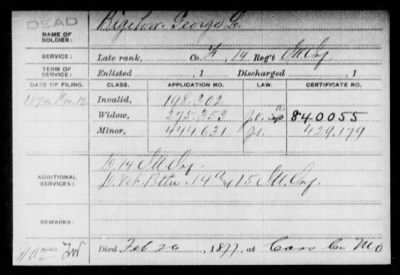 DEAD
NAME OF SOLDIER: Bigelow, George G.
SERVICE: Late rank, Co. F, 14 Reg't Ill Inf
TERM OF SERVICE: Enlisted , 1 Discharged , 1
DATE OF FILING. CLASS. APPLICATION NO. LAW. CERTIFICATE NO.
Invalid, 198.202
Widow, 275.253 840055
Minor, 444631 429.179
ADDITIONAL SERVICES: 14 Ill Inf
14 & 15 Ill Inf.
REMARKS:
Died Feb 20, 1877, at Cass Co. Mo